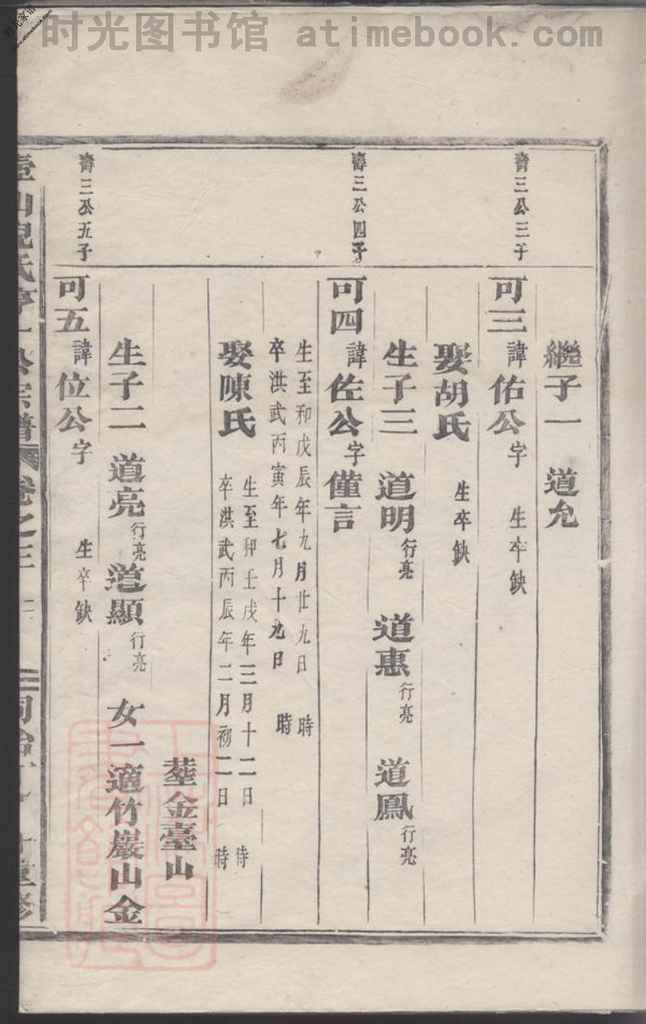 时光图书馆 atimebook.com
齊三公三子
齊三公四子
齊三公五子
繼子一 道允
可三諱佑公字 生卒缺
娶胡氏 生卒缺
生子三 道明行亮 道惠行亮 道鳳行亮
可四諱佐公字僅言
生至和戊辰年九月廿九日 時
卒洪武丙寅年七月十九日 時
娶陳氏 生至和壬戌年三月十二日 時
卒洪武丙辰年二月初二日 時
葬金臺山
生子二 道亮行亮 道顯行亮 女一適竹巖山金
可五諱位公字 生卒缺
氏
公宗譜
卷之三
重修